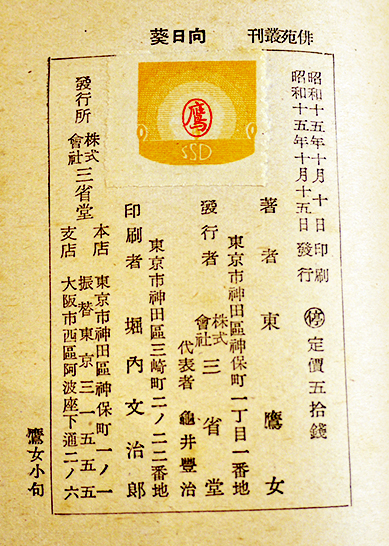 俳苑叢刊 向日葵
昭和十五年十月十日 印刷
昭和十五年十月十五日 發行
㊡ 定價五拾錢
著者 東鷹女
東京市神田區神保町一丁目一番地
發行者 株式會社 三省堂
代表者 龜井豐治
東京市神田區三崎町二ノ二二番地
印刷者 堀内文治郎
鷹
SSD
發行所 株式會社 三省堂
本店 東京市神田區神保町一ノ一
振替東京三一五五五
支店 大阪市西區阿波座下通二ノ六
鷹女小句